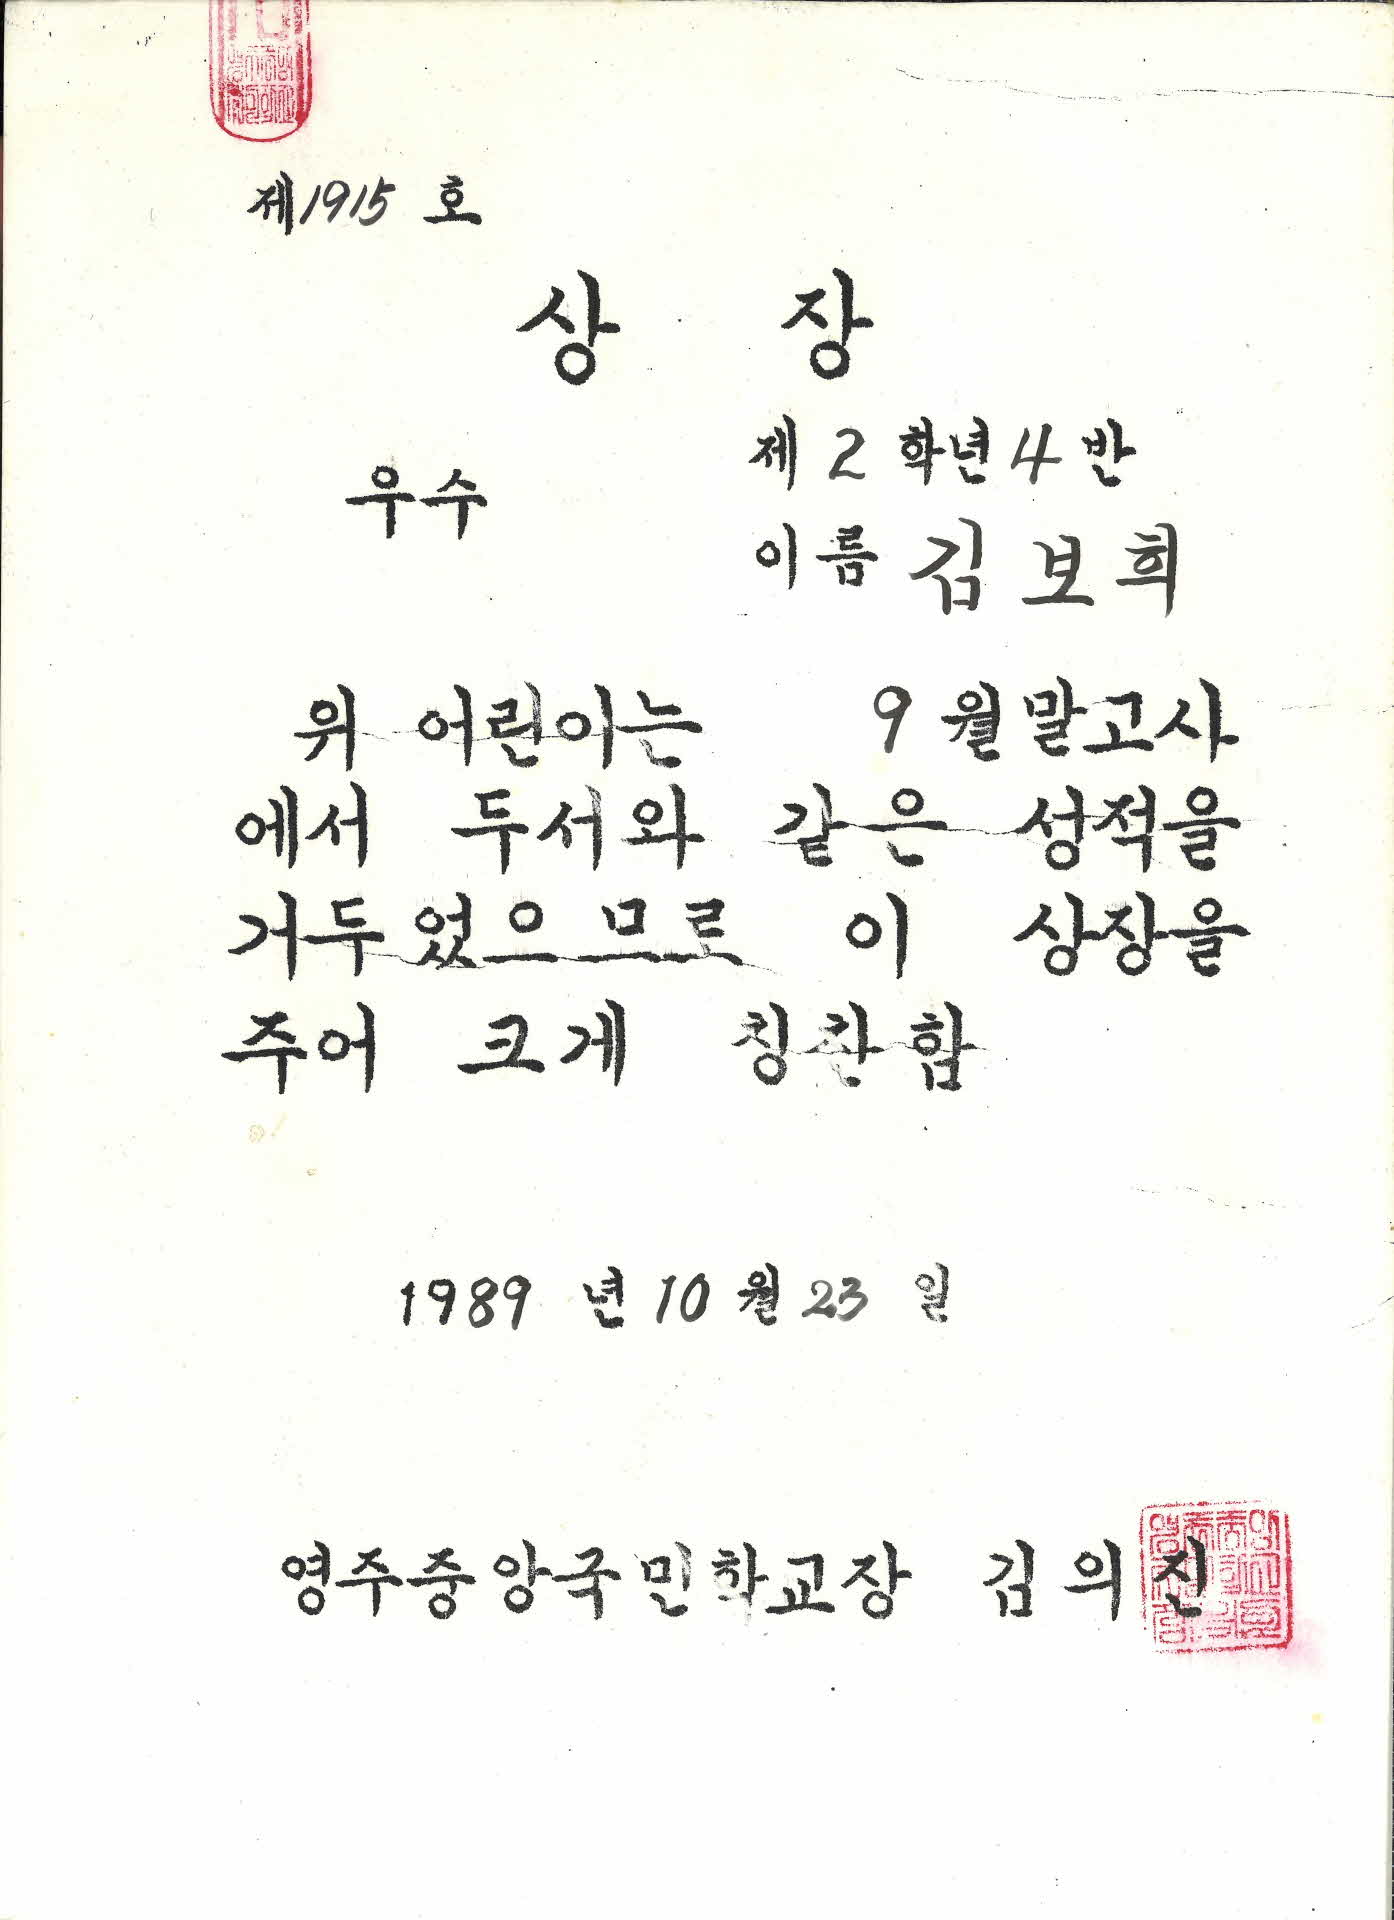 제1915 호
상 장
우수
제 2 학년 4 반
이름 김보희
위 어린이는 9월말고사
에서 두서와 같은 성적을
거두었으므로 이 상장을
주어 크게 칭찬함
1989 년 10 월 23 일
영주중앙국민학교장 김의진